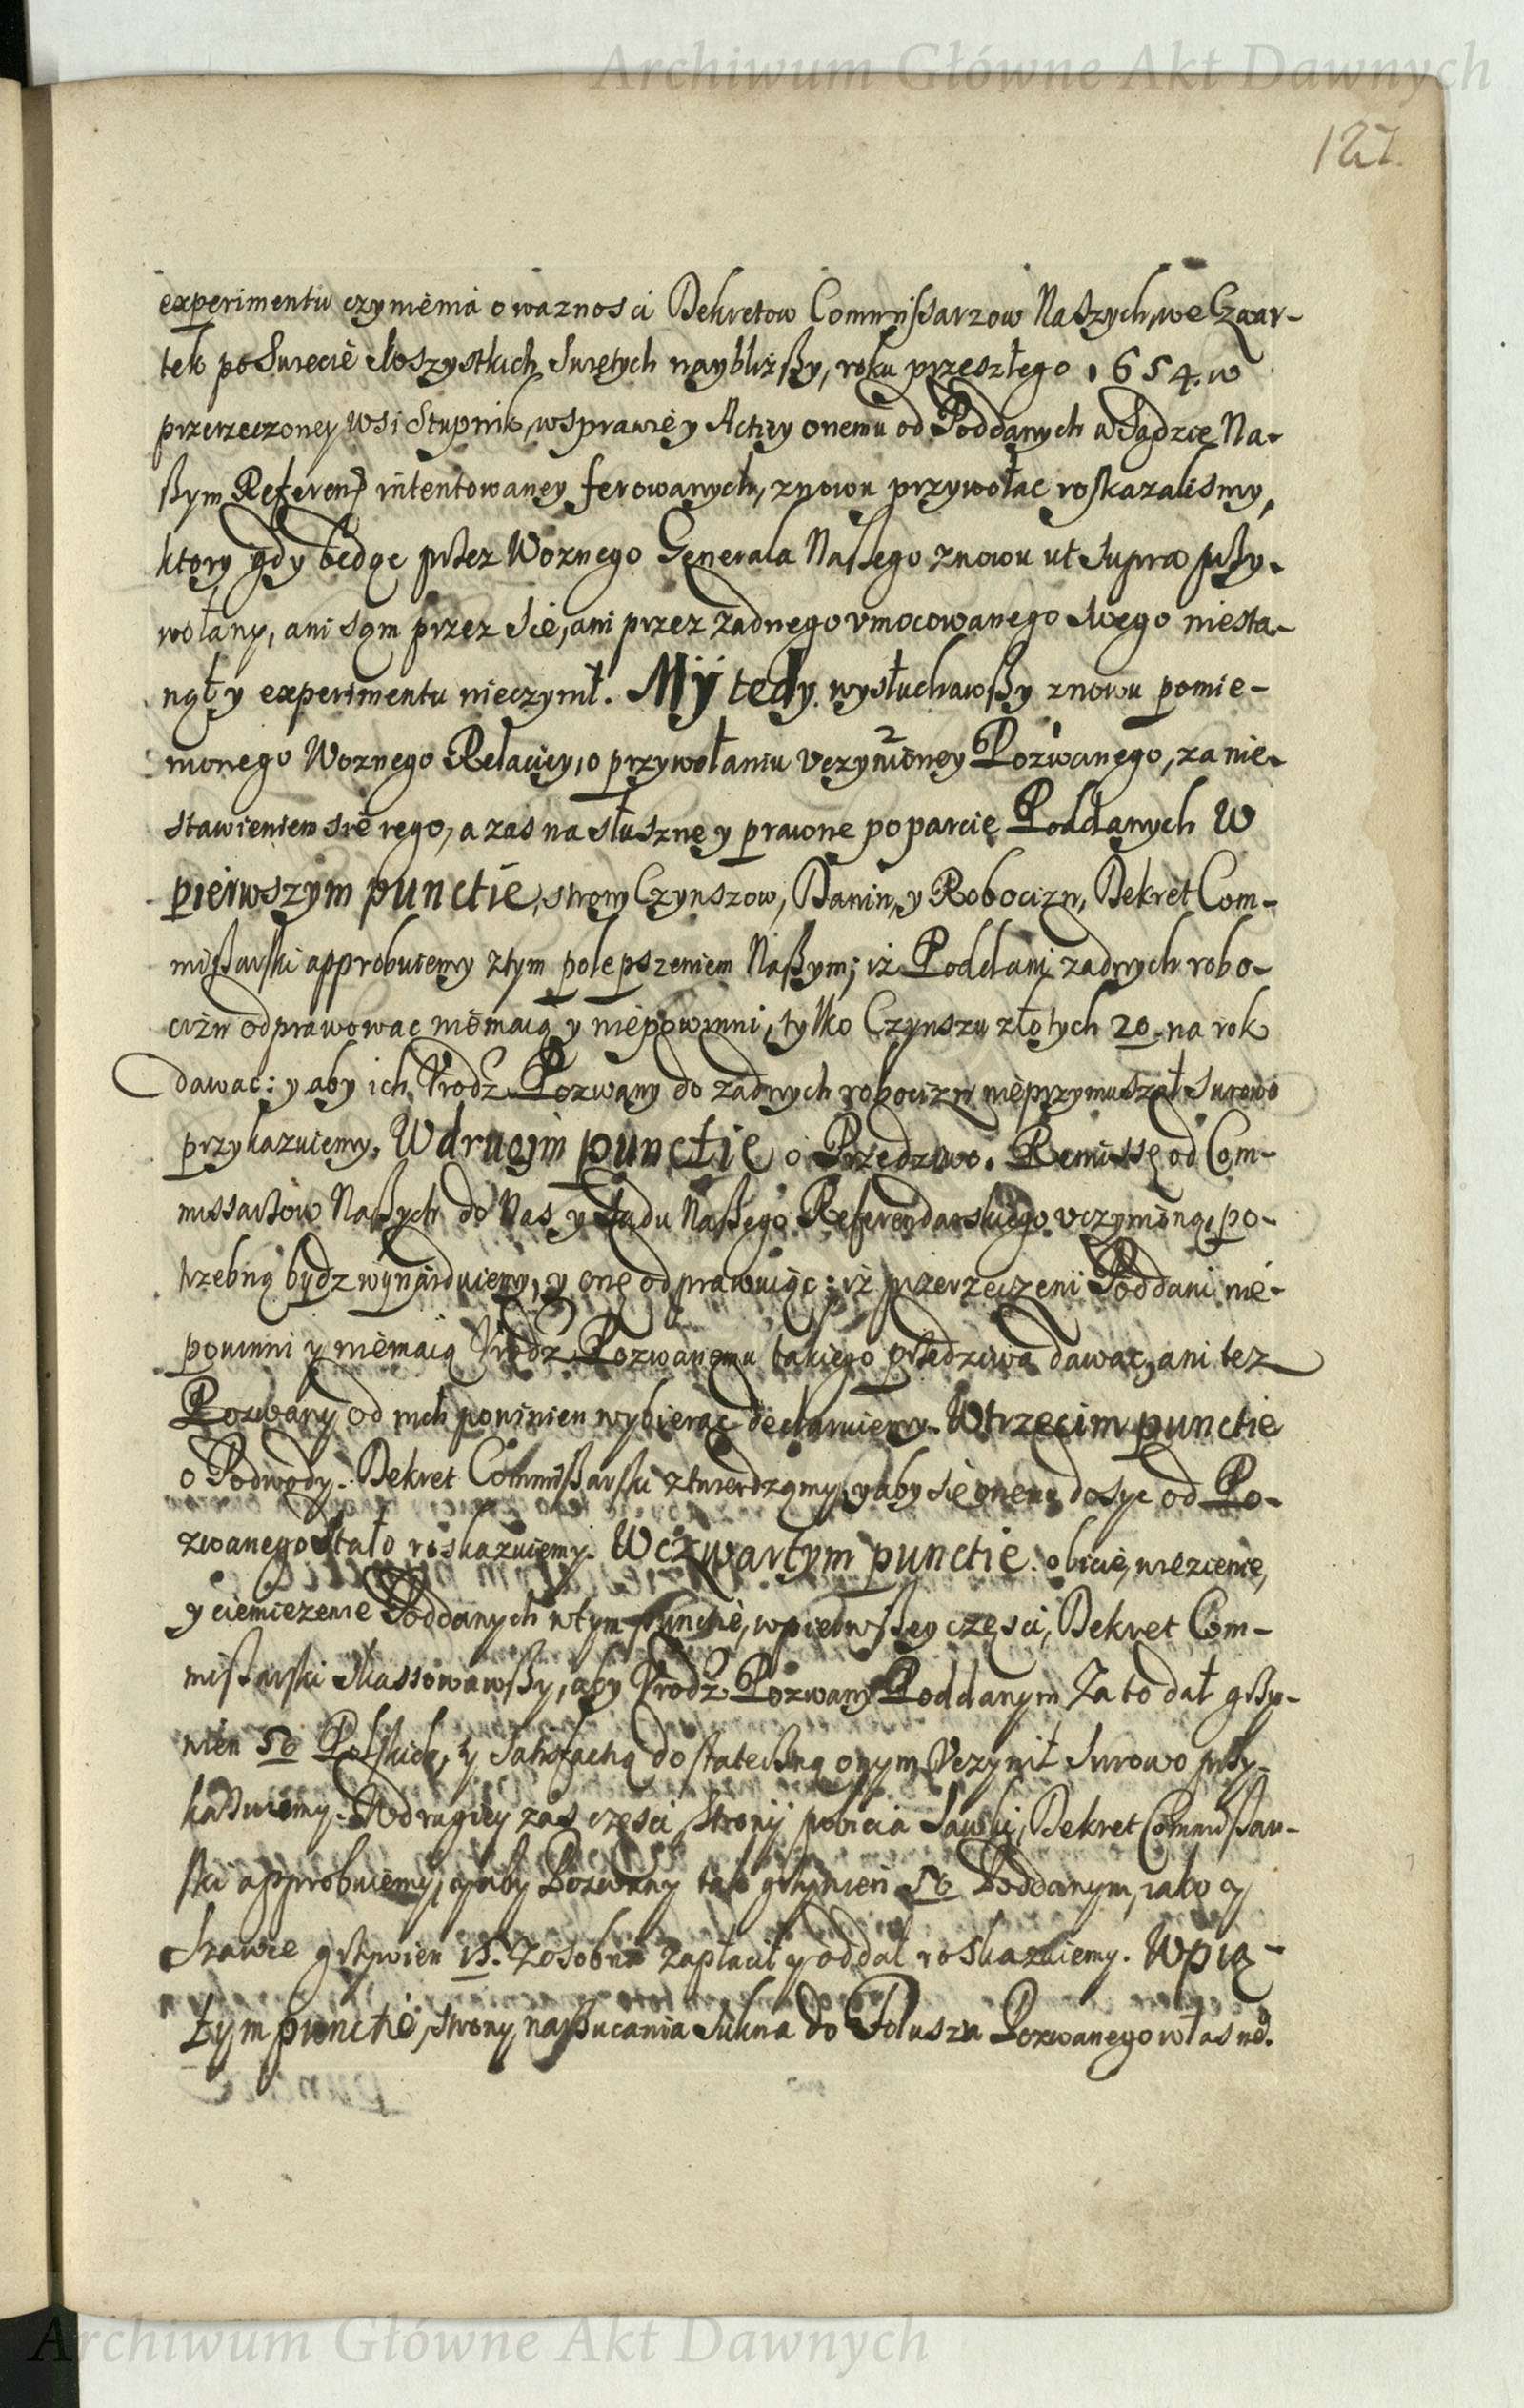 Archiwum Główne Akt Dawnych
127.
experimentu czynienia o waznosci Dekretow Commissarzow Naszych, we Czwar-
tek po Swięcie Wszystkich Swiętych nayblizßy, roku przeszłego 1654. w
przerzeczoney wsi Stupnik, w sprawie y Actiey onemu od Poddanych w Sądzie Na-
ßym Referen. intentowaney ferowanych, znowu przywołac roskazalismy,
ktory gdy będąc przez Woznego Generała Naßego znowu ut supra przy-
wołany, ani sąm przez się, ani przez zadnego vmocowanego swego niesta-
nął y experimentu nieczynił. Mÿ tedy wysłuchawßy znowu pomie-
nionego Woznego Relaciey, o przywołaniu vczynioney Pozwanego, za nie-
stawieniem się iego, a zas na słusznę y prawne poparcie Poddanych W
pierwszym punctie, strony Czynszow, Danin, y Robocizn, Dekret Com-
mißarski approbuiemy z tym polepszeniem Naßym; iż Poddani zadnych robo-
cizn odprawowac niemaią y niepowinni, tylko Czynszu złotych 20. na rok
dawac: y aby ich Vrodz. Pozwany do zadnych robocizn nieprzymuszał surowo
przykazuiemy. W drugim punctie o Przędziwo. Remissę od Com-
missarzow Naßych do Nas y Sądu Naßego Referendarskiego vczynioną, po-
trzebną bydz wynayduiemy, y onę odprawuiąc: iż przerzeczeni Poddani nie-
powinni y niemaią Vrodz. Pozwanemu takiego przędziwa dawac, ani tez
Pozwany od nich powinien wybierac declaruiemy. W trzecim punctie
o Podwody. Dekret Commißarski ztwierdzamy, y aby się onemu dosyc od Po-
zwanego stało roskazuiemy. W czwartym punctie o bicie, więzienie,
y ciemiezenie Poddanych w tym punctie, w pierwßey częsci, Dekret Com-
mißarski skassowawßy, aby Vrodz. Pozwany Poddanym za to dał grzy-
wien 50 Polskich, y satisfactią dostateczną onym vczynił surowo przy-
kazuiemy. W drugiey zas częsci strony pobicia Sawki, Dekret Commißar-
ski approbuiemy, y aby Pozwany tak grzywien 50 Poddanym, iako y
Sawce grzywien 15. z osobna zapłacił y oddał roskazuiemy. W pią-
tym punctie, strony narzucania sukna do Folusza Pozwanego własneg.
Archiwum Główne Akt Dawnych